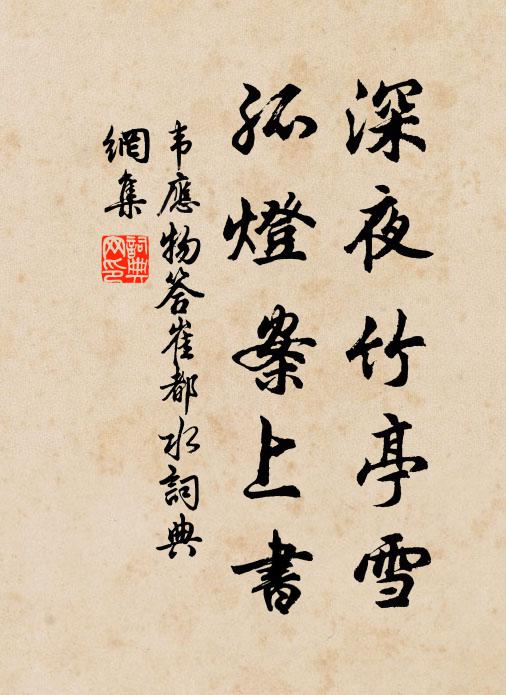 深夜竹亭雪
孤燈案上書
韦應物答崔都水詞典
網集
詞典
网印